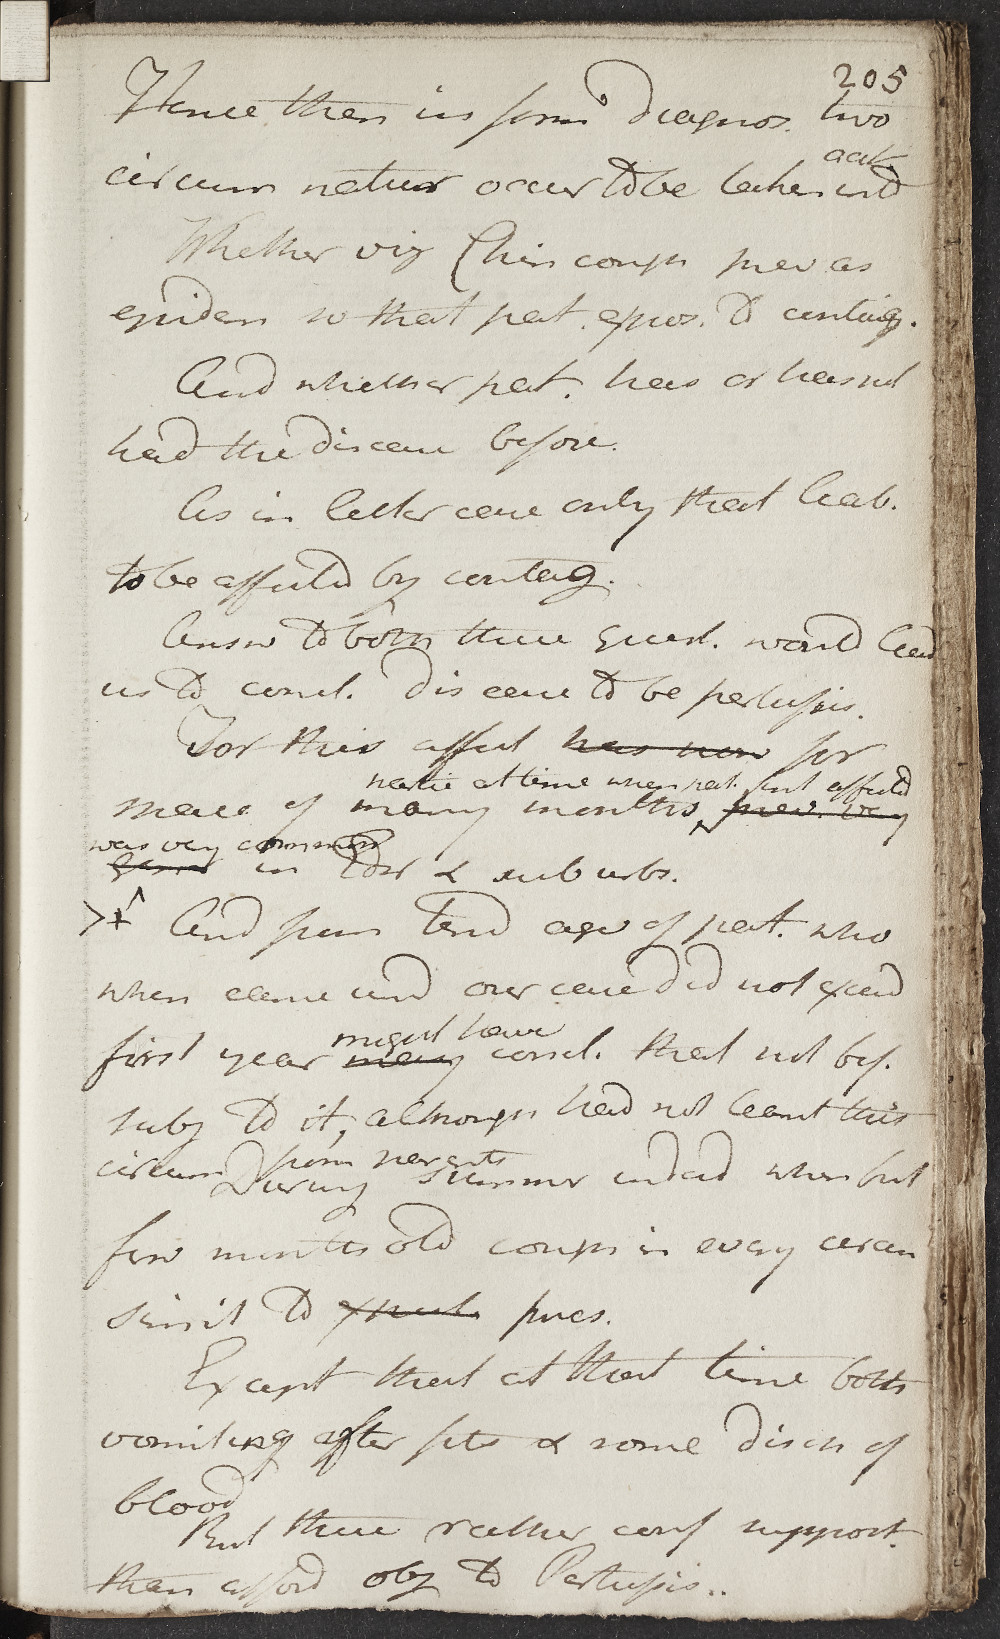 205
Hence then in form diagnos. two
circum natur occur to be taken into
acct
Whether viz Chincough prev as
epidem so that pat. expos. to contag.
And whether pat. has or has not
had the disease before.
As in latter case only that liab.
to be affected by contag.
Answ to both these quest. would lead
us to concl. disease to be pertussis.
For this affect has now for
space of many months prev. very
native at time when pat. first affected
was very common
in Edr & suburbs.
And from tend age of pat. who
when came und our care did not exceed
first year many concl. that not bef.
might have
subj to it, although had not learnt this
circum from parents
During summer indeed when but
few months old cough in every circum
simil to pres.
Except that at that time both
vomiting after fits & some disch of
blood
But these rather conf support
than afford obj to Pertussis..